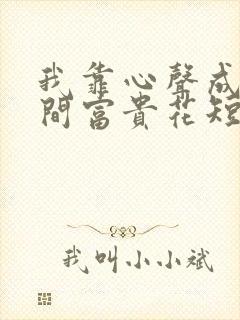 我靠心聲成
間富貴花短
我叫小小斌